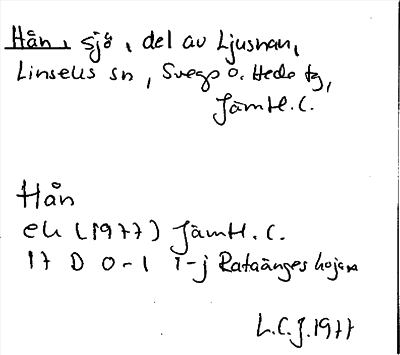 Hån, sjö, del av Ljusnan,
Linsells sn, Svegs o. Hede tg,
Jämtl.
Hån
ek (1977) Jämtl.
17 D 0-1 i-j Rataänges
L.C.J. 1977